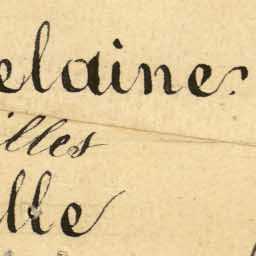 elaine
illes
lle